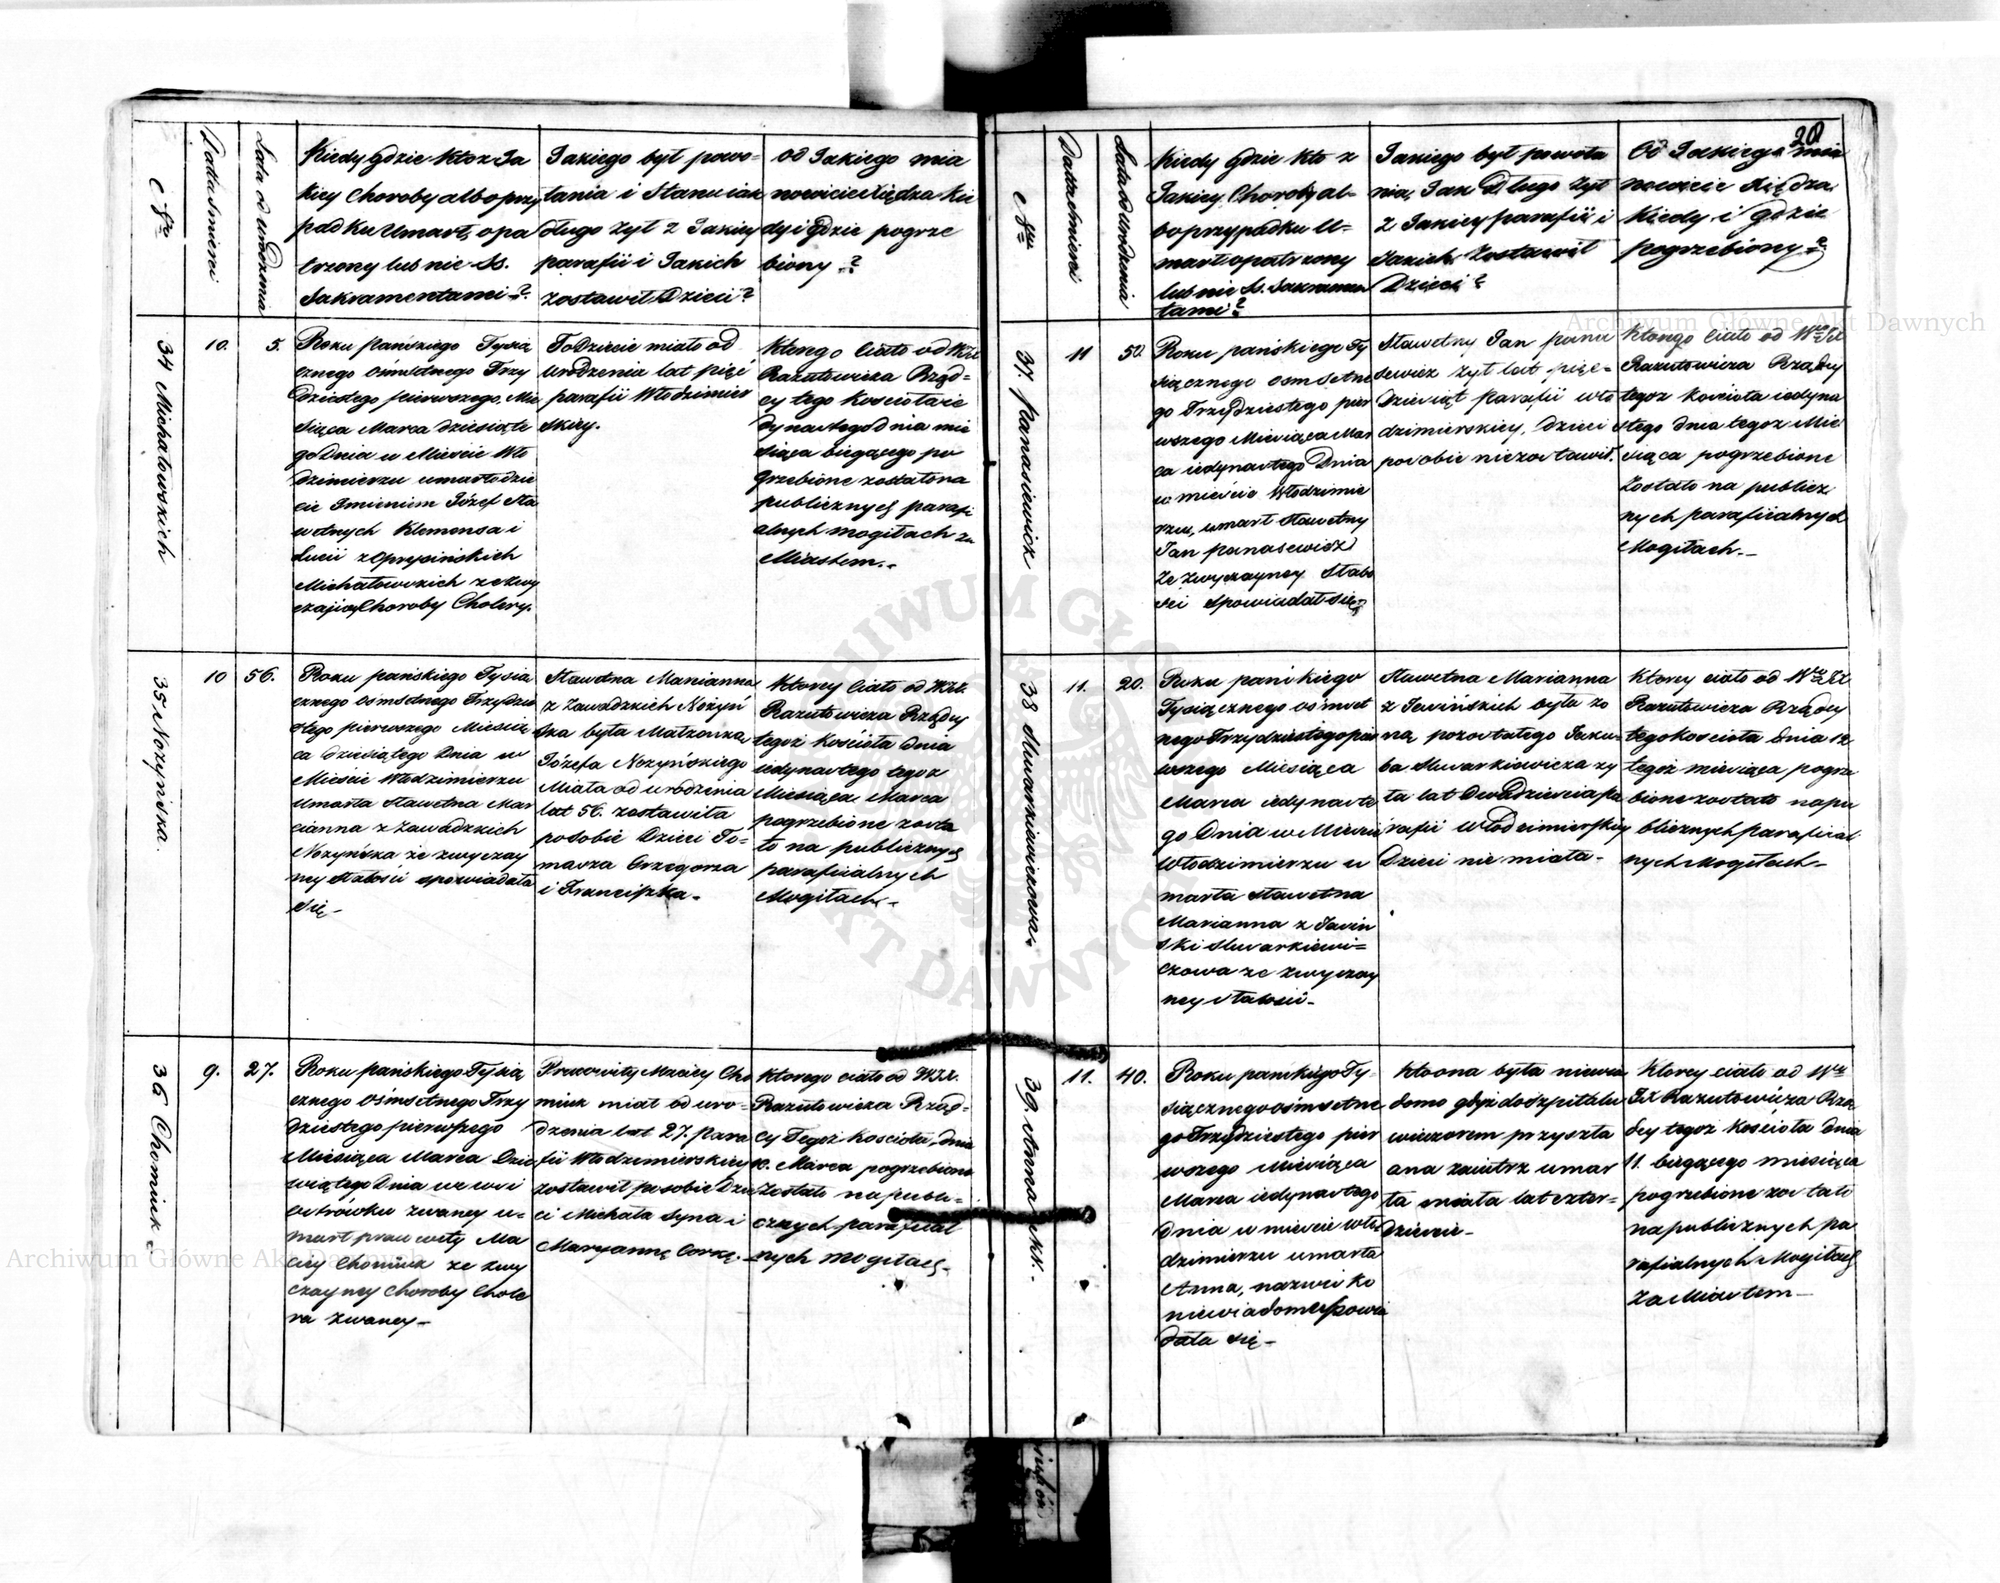 Nro
Data Śmierci
Lata od Urodzenia
Kiedy Gdzie Kto z Ja
kiey Choroby albo przy
padku Umarł, opa
trzony lub nie SS.
Sakramentami?
Jakiego był powo-
łania i Stanu iak
długo żył z Jakiey
parafii i Jakich
zostawił Dzieci?
Od Jakiego mia
nowicie Xiędza Kie
dy i Gdzie pogrze
biony?
34 Michałowskich
10.
5.
Roku pańskiego Tysią
cznego Ośmsetnego Trzy
Dziestego pierwszego, Mie
siąca Marca dziesiąte
go Dnia w Mieście Wło
dzimierzu umarło dzie
cie Imieniem Józef Sła
wetnych Klemensa i
Łucii z
Michałowskich ze zwy
czajney Choroby Cholery.
To Dziecie miało od
Urodzenia lat pięć
parafii Włodzimier
skiey.
Ktorego Ciało od WJX
Razutowicza Rząd-
cy tego Kościoła ie
dynastego Dnia mie
siąca biegącego po
grzebione zostało na
publicznych parafi
alnych mogiłach za
Miastem.
35 Nożyńska
10
56.
Roku pańskiego Tysią
cznego Ośmsetnego Trzydzie
stego pierwszego Miesią
ca dziesiątego Dnia w
Mieście Włodzimierzu
Umarła Sławetna Mar
cianna z Zawadzkich
Nożyńska ze zwyczay
ney słabości spowiadała
się
Sławetna Marianna
z Zawadzkich Nożyń
ska była Małżonką
Józefa Nożyńskiego
Miała od urodzenia
lat 56. zostawiła
po Sobie Dzieci To-
masza Grzegorza
i Franciszka.
Ktorey Ciało od WJX.
Razutowicza Rządcy
tegoż Kościoła Dnia
iedynastego tegoż
Miesiąca Marca
pogrzebione zosta
ło na publicznych
parafialnych
Mogiłach
36 Chomiuk
9.
27.
Roku pańskiego Tysią
cznego Ośmsetnego Trzy
dziestego pierwszego
Miesiąca Marca Dzie
wiątego Dnia we wsi
Ostrówku zwaney u-
marł pracowity Ma
ciey Chomiuk ze zwy
czayney Choroby Chole
ra zwaney
Pracowity Maciey Cho
miuk miał od uro-
dzenia lat 27. para
fii Włodzimierskiey
zostawił po sobie Dzie
ci Michała Syna i
Maryannę Corkę.
Ktorego ciało od WJX.
Razutowicza Rząd-
cy Tegoż Kościoła, dnia
10. Marca pogrzebione
zostało na publi-
cznych parafial
nych mogiłach
20
Nro
Data Śmierci
Lata od Urodzenia
Kiedy Gdzie Kto z
Jakiey Choroby al-
bo przypadku U-
marł opatrzony
lub nie SS. Sakramen
tami?
Jakiego był powoła
nia, Jak Długo żył
z Jakiey parafii, i
Jakich Zostawił
Dzieci?
Od Jakiego mia
nowicie Xiędza
Kiedy i Gdzie
pogrzebiony?
37. Panasiewicz
11
50.
Roku pańskiego Ty
siącznego Ośmsetne
go Trzydziestego pier
wszego Miesiąca Mar
ca iedynastego Dnia
w mieście Włodzimie
rzu, umarł Sławetny
Jan Panasewicz
ze zwyczayney Słabo
ści spowiadał się
Sławetny Jan pana
sewicz żył lat pięć-
dziesiąt parafii Wło
dzimierskiey, Dzieci
po sobie niezostawił.
Ktorego Ciało od Wgo JX
Razutowicza Rządcy
tegoż Kościoła iedyna
stego dnia tegoż Mie
siąca pogrzebione
Zostało na publicz
nych parafialnych
Mogiłach.
38 Słuwarkiewiczowa
11.
20.
Roku pańskiego
Tysiącznego ośmset
nego Trzydziestego pier
wszego Miesiąca
Marca iedynaste
go Dnia w Mieście
Włodzimierzu u
marła Sławetna
Marianna z
ski Słuwarkiewi-
czowa ze zwyczay
ney słabości
Sławetna Marianna
z była żo
ną pozostałego Jaku-
ba Słuwarkiewicza ży
ła lat Dwadzieścia pa
rafii Włodzimierskiey
Dzieci nie miała
Ktorey ciało od Wgo JX
Razutowicza Rządcy
tego Kościoła Dnia 12
tegoż miesiąca pogrze
bione zostało na pu
blicznych parafial
nych Mogiłach
39. Anna NN.
11.
40.
Roku pańskiego Ty-
siącznego ośmsetne
go Trzydziestego pier
wszego Miesiąca
Marca iedynastego
Dnia w mieście Wło
dzimierzu umarła
Anna, nazwisko
niewiadome spowia
dała się
Kto ona była niewia
domo gdyż do szpitalu
wieczorem przyszła
a na zaiutrz umar
ła miała lat czter-
dzieście
Ktorey ciało od Wgo
JX Razutowicza Rzą
dcy tegoż Kościoła dnia
11. biegącego miesiąca
pogrzebione zostało
na publicznych pa
rafialnych Mogiłach
za Miastem
Archiwum Główne Akt Dawnych
Archiwum Główne Akt Dawnych
ARCHIWUM GŁÓWNE AKT DAWNYCH